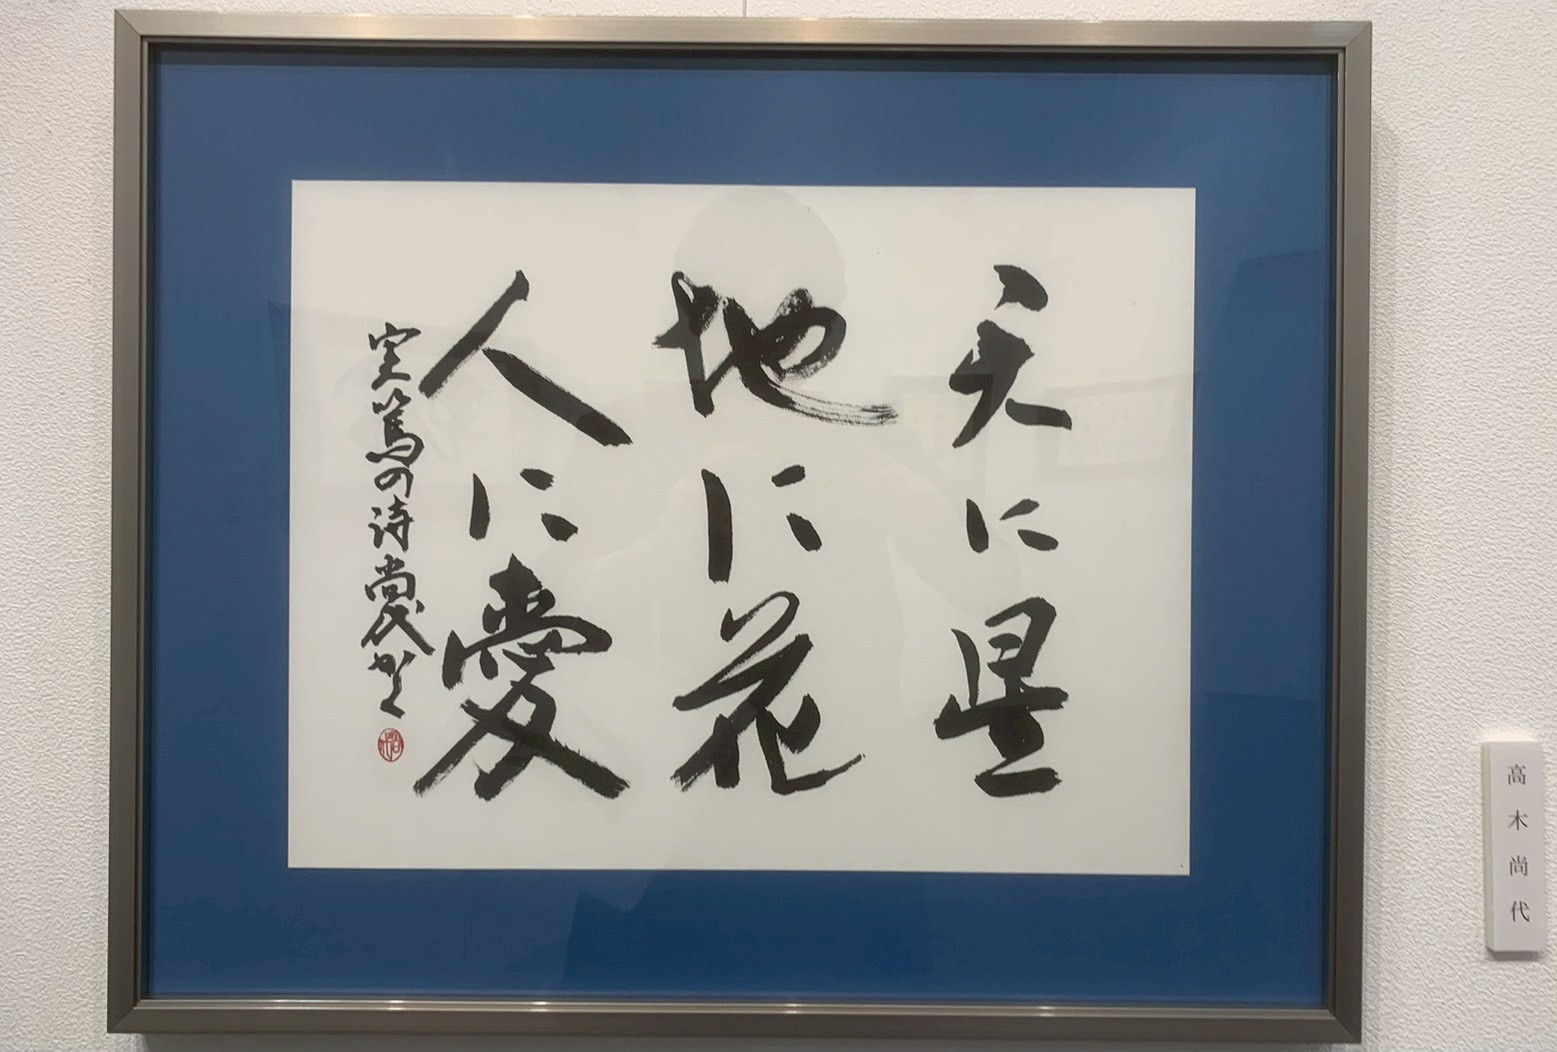 天に星
地に花
人に愛
実篤の詩 尚代かく
高木尚代